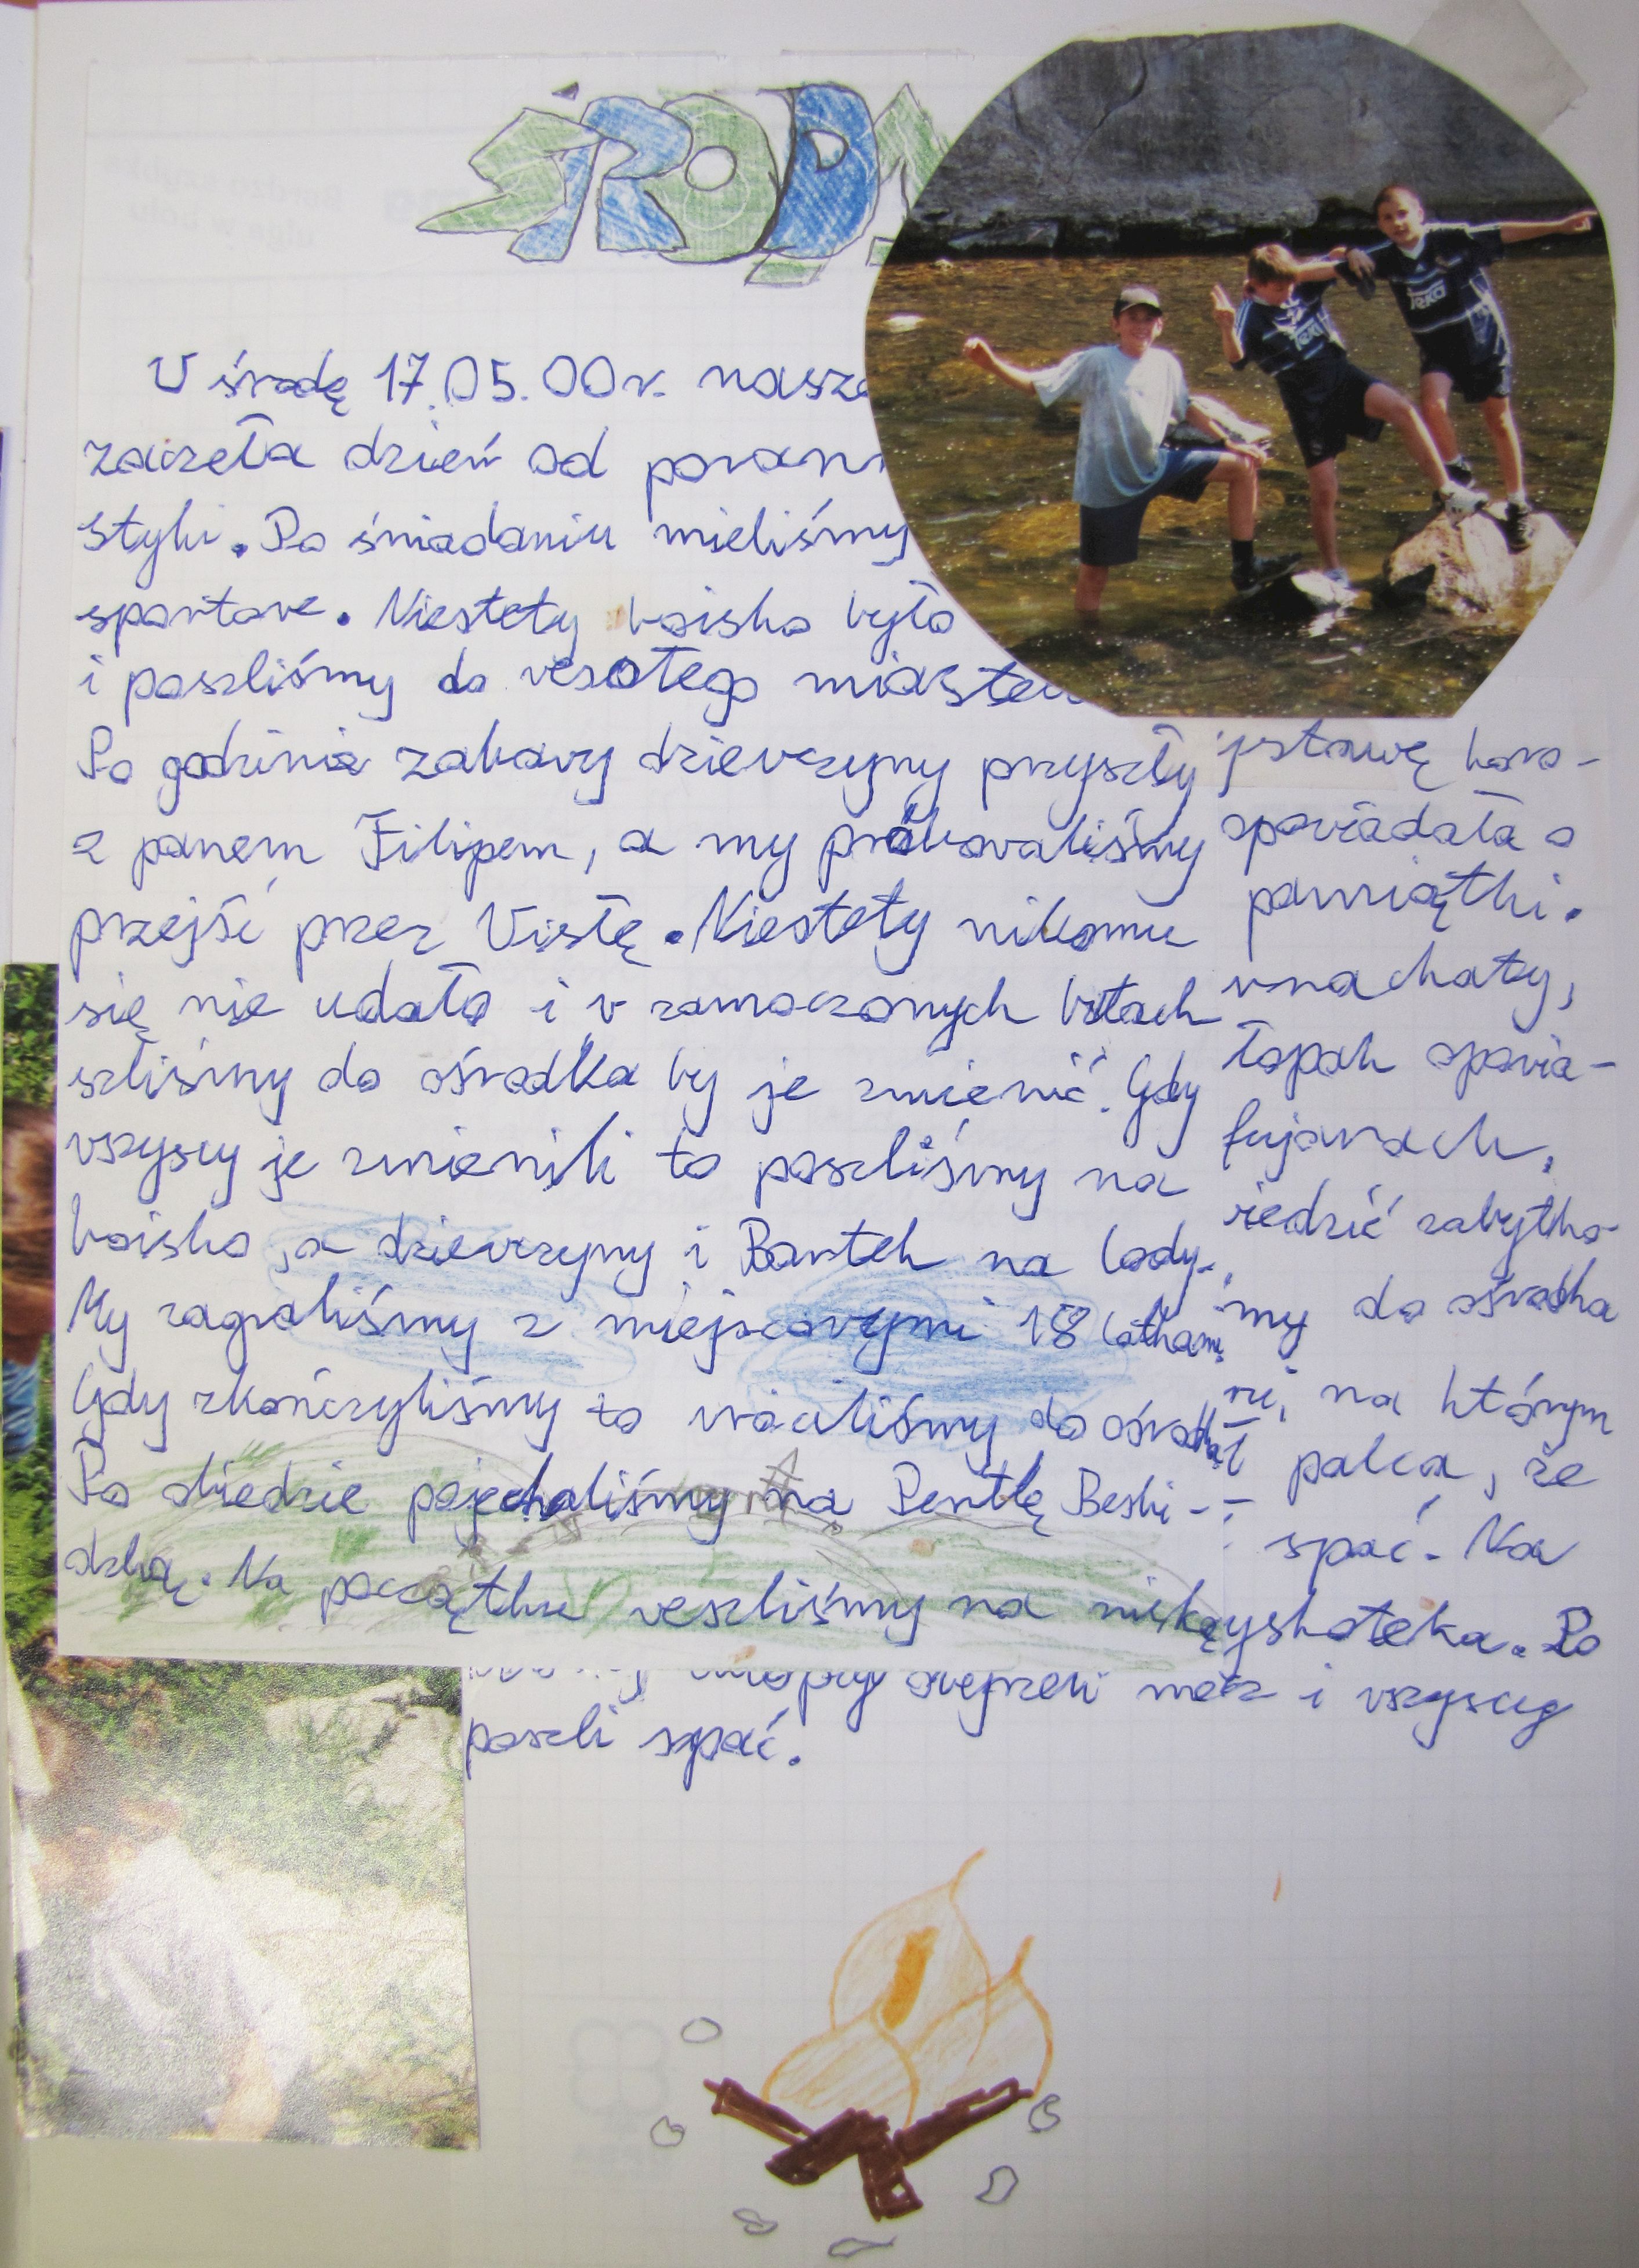 ŚRODA
W środę 17.05.00r. nasza
zaczęła dzień od porann
styki. Po śniadaniu mieliśmy
sportowe. Niestety boisko było
i poszliśmy do wesołego miastecz
Po godzinie zabawy dziewczyny przyszły
z panem Filipem, a my próbowaliśmy
przejść przez Wisłę. Niestety nikomu
się nie udało i w zamoczonych butach
szliśmy do ośrodka by je zmienić. Gdy
wszyscy je zmienili to poszliśmy na
boisko, a dziewczyny i Bartek na lody.
My zagraliśmy z miejscowymi 18 latkami
Gdy zkończyliśmy to wróciliśmy do ośrodka
Po obiedzie pojechaliśmy na Pentlę Beski-
dzką. Na początku weszliśmy na
stawę koro-
opowiadała o
pamiątki.
chaty,
łopak opowia-
fujarach,
iedzić zabytko-
my do ośrodka
na którym
palca, że
spać. Na
yskoteka. Po
mecz i wszyscy
poszli spać.
TEKA
TEKA